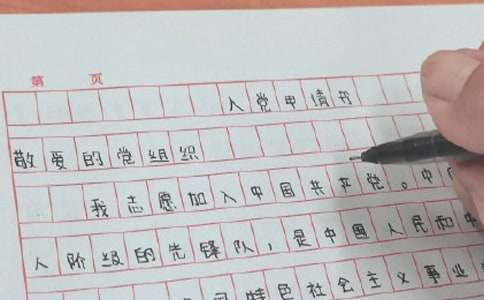 第 页
入党申请书
敬爱的党组织
我志愿加入中国共产党。中
人阶级的先锋队，是中国人民和中
特色社会主义事业